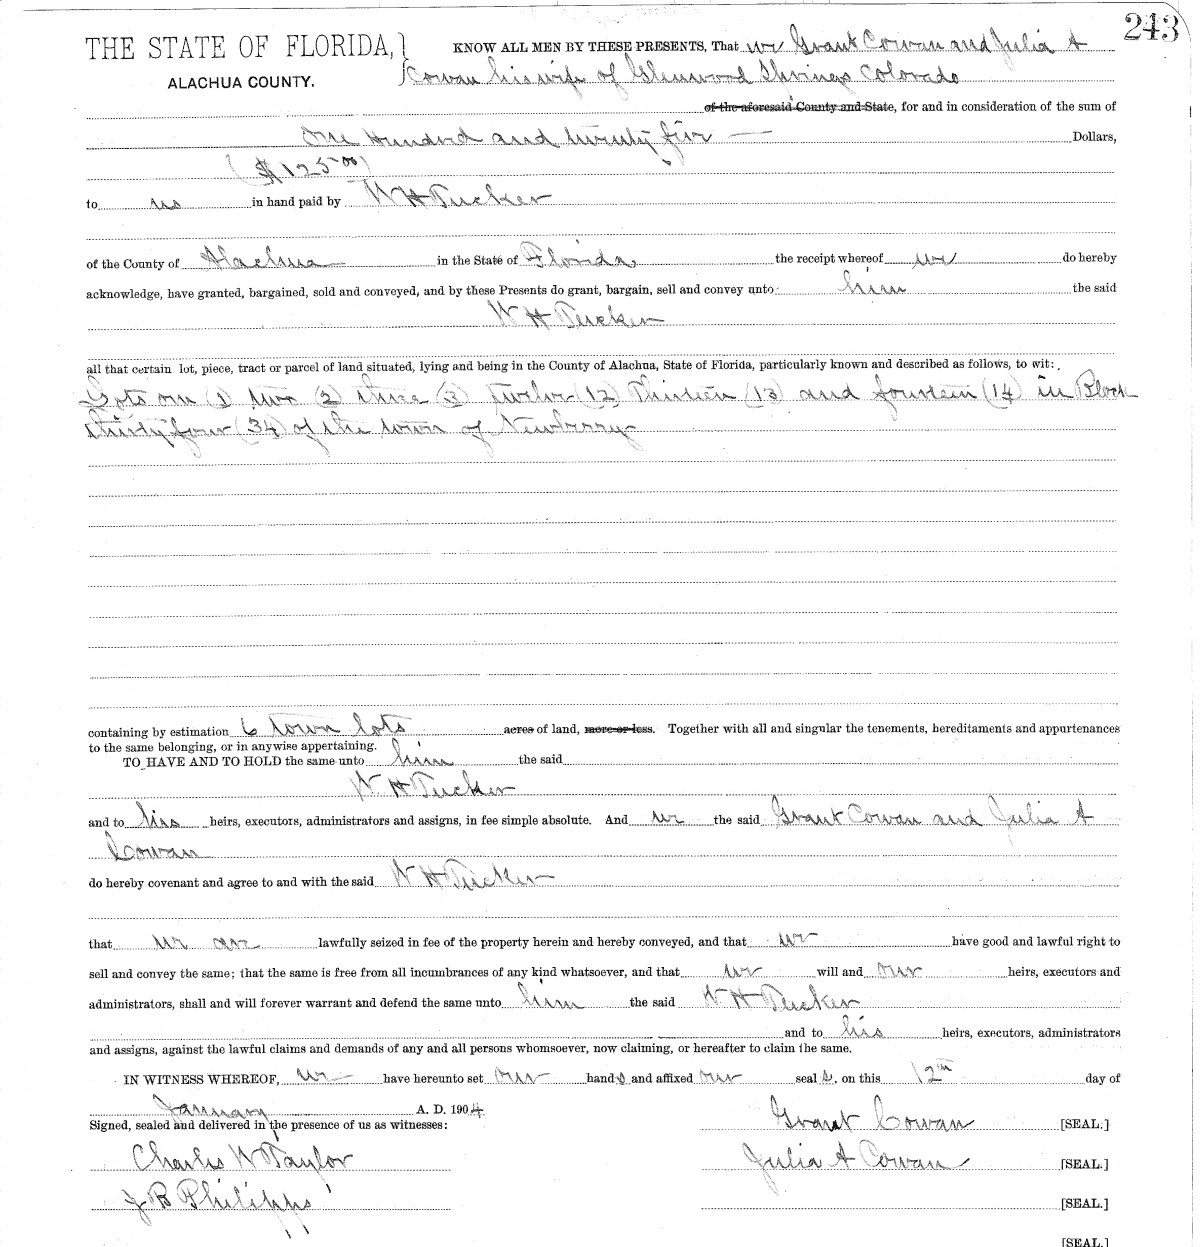 243
THE STATE OF FLORIDA,
ALACHUA COUNTY.
KNOW ALL MEN BY THESE PRESENTS, That we Grant Cowan and Julia A
Cowan his wife of Glenwood Springs Colorado
of the aforesaid County and State, for and in consideration of the sum of
One Hundred and twenty five — Dollars,
($125.00)
to us in hand paid by W H Tucker
of the County of Alachua in the State of Florida the receipt whereof we do hereby
acknowledge, have granted, bargained, sold and conveyed, and by these Presents do grant, bargain, sell and convey unto him the said
W H Tucker
all that certain lot, piece, tract or parcel of land situated, lying and being in the County of Alachua, State of Florida, particularly known and described as follows, to wit:
Lots one (1) two (2) three (3) twelve (12) Thirteen (13) and fourteen (14) in Block
thirty four (34) of the town of Newberry
containing by estimation 6 town lots acres of land, more or less. Together with all and singular the tenements, hereditaments and appurtenances
to the same belonging, or in anywise appertaining.
TO HAVE AND TO HOLD the same unto him the said
W H Tucker
and to his heirs, executors, administrators and assigns, in fee simple absolute. And we the said Grant Cowan and Julia A
Cowan
do hereby covenant and agree to and with the said W H Tucker
that we are lawfully seized in fee of the property herein and hereby conveyed, and that we have good and lawful right to
sell and convey the same; that the same is free from all incumbrances of any kind whatsoever, and that we will and our heirs, executors and
administrators, shall and will forever warrant and defend the same unto him the said W H Tucker
and to his heirs, executors, administrators
and assigns, against the lawful claims and demands of any and all persons whomsoever, now claiming, or hereafter to claim the same.
IN WITNESS WHEREOF, we have hereunto set our hands and affixed our seals, on this 12th day of
January A. D. 1904
Signed, sealed and delivered in the presence of us as witnesses:
Grant Cowan [SEAL.]
Charles W Taylor
Julia A Cowan [SEAL.]
J B Philipps
[SEAL.]
[SEAL.]